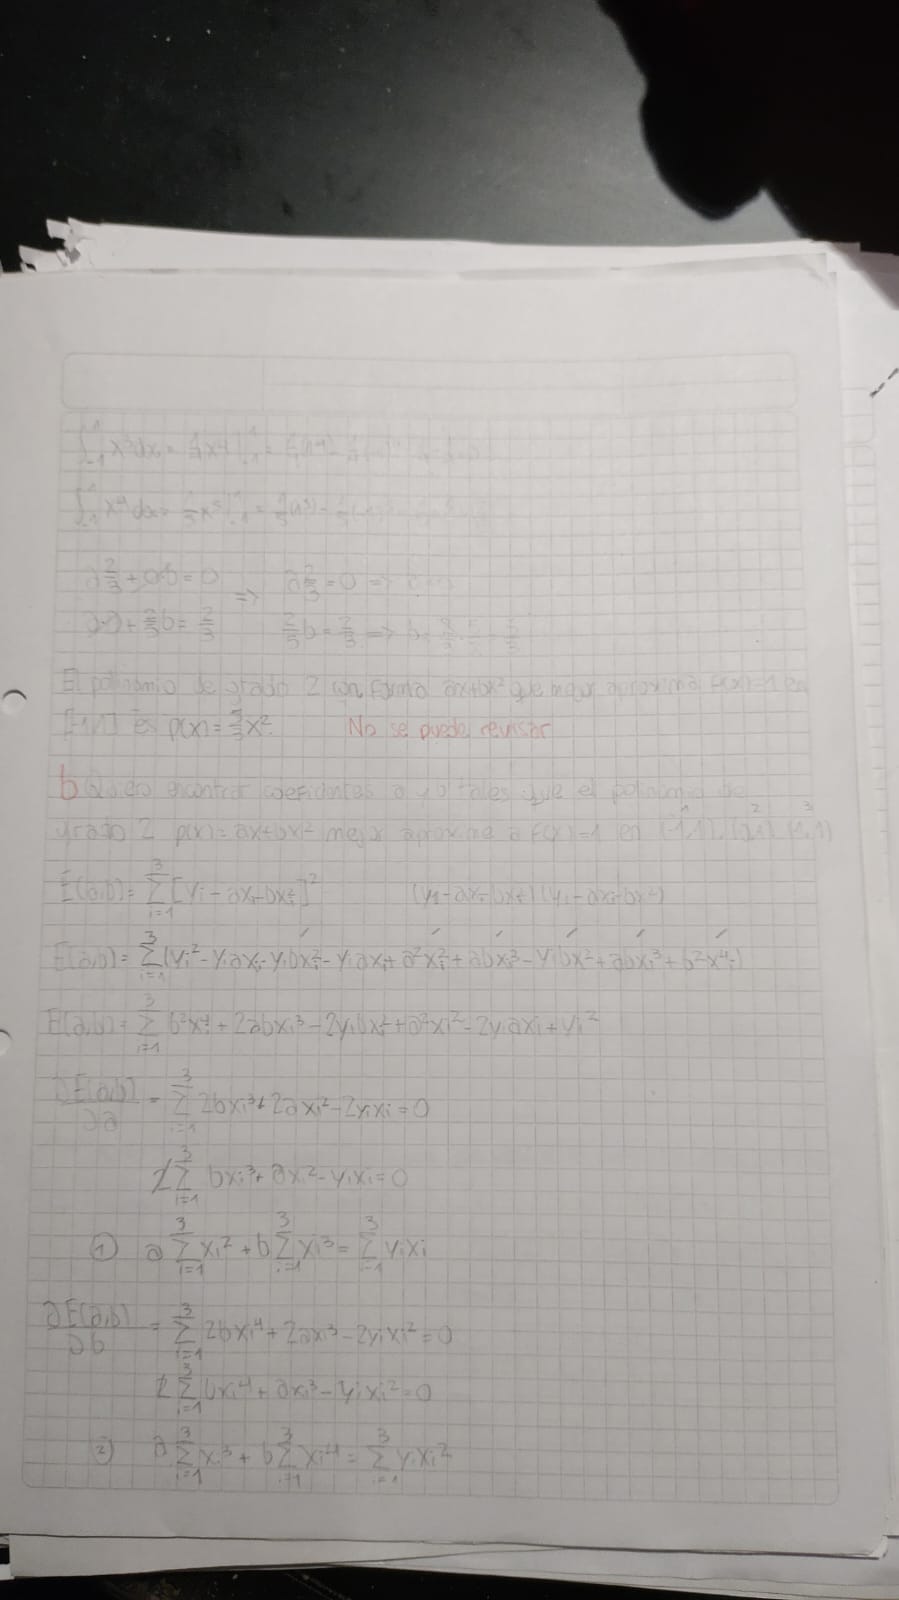 ∫₋₁¹ x³dx = ¼x⁴|₋₁¹ = ¼(1⁴) -
∫₋₁¹ x⁴dx = ⅕x⁵|₋₁¹ = ⅕(1⁵) -
a⅔ + 0·b = 0 => a⅔ = 0 =>
a·0 + ⅖b = ⅔ ⅖b = ⅔ => b =
El polinomio de grado 2 con forma ax+bx² que mejor aproxima f(x)=1 en
[-1,1] es p(x) = x². No se puede revisar
b Quiero encontrar coeficientes a y b tales que el polinomio de
grado 2 p(x) = ax+bx² mejor aproxime a f(x)=1 en
E(a,b) = Σᵢ₌₁³ [yᵢ - axᵢ - bxᵢ²]² (yᵢ - axᵢ - bxᵢ²)(yᵢ - axᵢ - bxᵢ²)
E(a,b) = Σᵢ₌₁³ (yᵢ² - yᵢaxᵢ - yᵢbxᵢ² - yᵢaxᵢ + a²xᵢ² + abxᵢ³ - yᵢbx² + abxᵢ³ + b²x⁴ᵢ)
E(a,b) = Σᵢ₌₁³ b²xᵢ⁴ + 2abxᵢ³ - 2yᵢbxᵢ² + a²xᵢ² - 2yᵢaxᵢ + yᵢ²
∂E(a,b)/∂a = Σᵢ₌₁³ 2bxᵢ³ + 2axᵢ² - 2yᵢxᵢ = 0
2Σᵢ₌₁³ bxᵢ³ + axᵢ² - yᵢxᵢ = 0
① a Σᵢ₌₁³ xᵢ² + b Σᵢ₌₁³ xᵢ³ = Σᵢ₌₁³ yᵢxᵢ
∂E(a,b)/∂b = Σᵢ₌₁³ 2bxᵢ⁴ + 2axᵢ³ - 2yᵢxᵢ² = 0
2Σᵢ₌₁³ bxᵢ⁴ + axᵢ³ - yᵢxᵢ² = 0
② a Σᵢ₌₁³ xᵢ³ + b Σᵢ₌₁³ xᵢ⁴ = Σᵢ₌₁³ yᵢxᵢ²